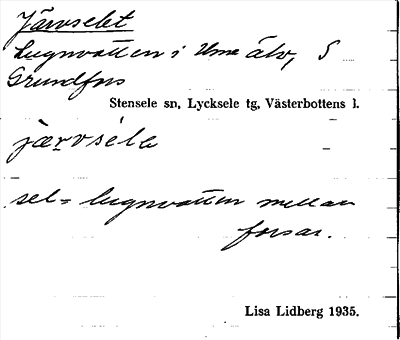 Järvselet
Lugnvatten i Ume älv, S
Grundfors
Stensele sn, Lycksele tg, Västerbottens l.
jærvsèlɛ
sel = lugnvatten mellan
forsar.
Lisa Lidberg 1935.